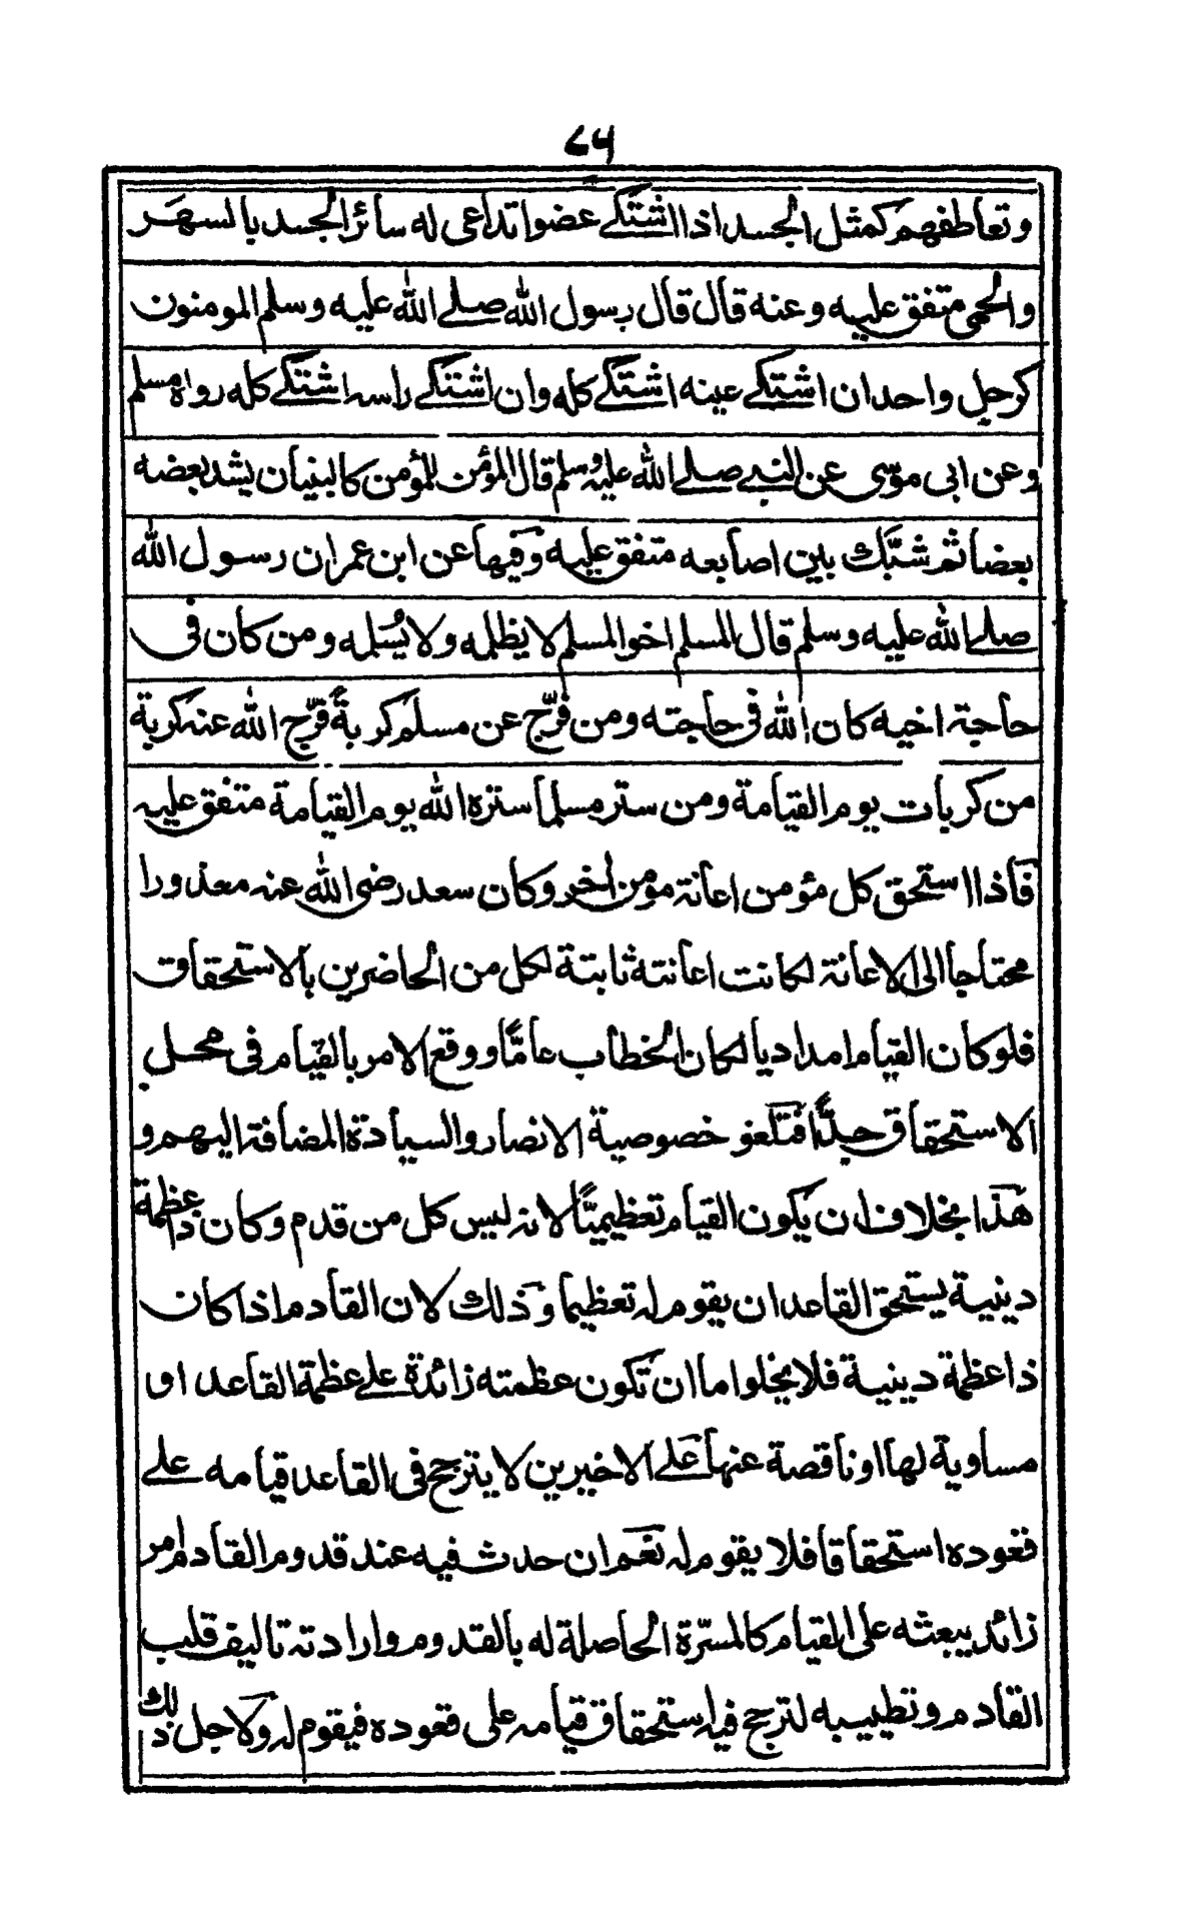 ٧٥
وتعاطفهم كمثل الجسد اذا اشتكے عضوا تداعى له سائر الجسد بالسهر
والحمى متفق عليه وعنه قال قال رسول الله صلے الله عليه وسلم المومنون
كرجل واحد ان اشتكے عينه اشتكے كله وان اشتكے راسه اشتكے كله رواه مسلم
وعن ابى موسى عن النبے صلے الله عليه وسلم قال المؤمن للمؤمن كالبنيان يشد بعضه
بعضا ثم شبّك بين اصابعه متفق عليه وفيها عن ابن عمر ان رسول الله
صلے الله عليه وسلم قال المسلم اخو المسلم لا يظلمه ولا يُسلمه ومن كان فى
حاجة اخيه كان الله فى حاجته ومن فرّج عن مسلم كربةً فرّج الله عنه كربة
من كربات يوم القيامة ومن ستر مسلما ستره الله يوم القيامة متفق عليه
فاذا استحق كل مؤمن اعانة مومن اخر وكان سعد رضى الله عنه معذورا
محتاجا الى الاعانة لكانت اعانته ثابتة لكل من الحاضرين بالاستحقاق
فلو كان القيام امداديا لكان الخطاب عامًّا ووقع الامر بالقيام فى محل
الاستحقاق جدًّا فتلغو خصوصية الانصار والسيادة المضافة اليهم و
هذا بخلاف ان يكون القيام تعظيميًّا لانه ليس كل من قدم وكان ذا عظمة
دينية يستحق القاعد ان يقوم له تعظيما وذلك لان القادم اذا كان
ذا عظمة دينية فلا يخلوا ما ان تكون عظمته زائدة علے عظمة القاعد او
مساوية لها او ناقصة عنها علے الاخيرين لا يترجح فى القاعد قيامه علے
قعوده استحقاقا فلا يقوم له نعم ان حدث فيه عند قدوم القادم امر
زائد يبعثه على القيام كالمسرّة الحاصلة له بالقدوم وارادته تاليف قلب
القادم وتطييبه لترجح فيه استحقاق قيامه على قعوده فيقوم له ولاجل ذلك